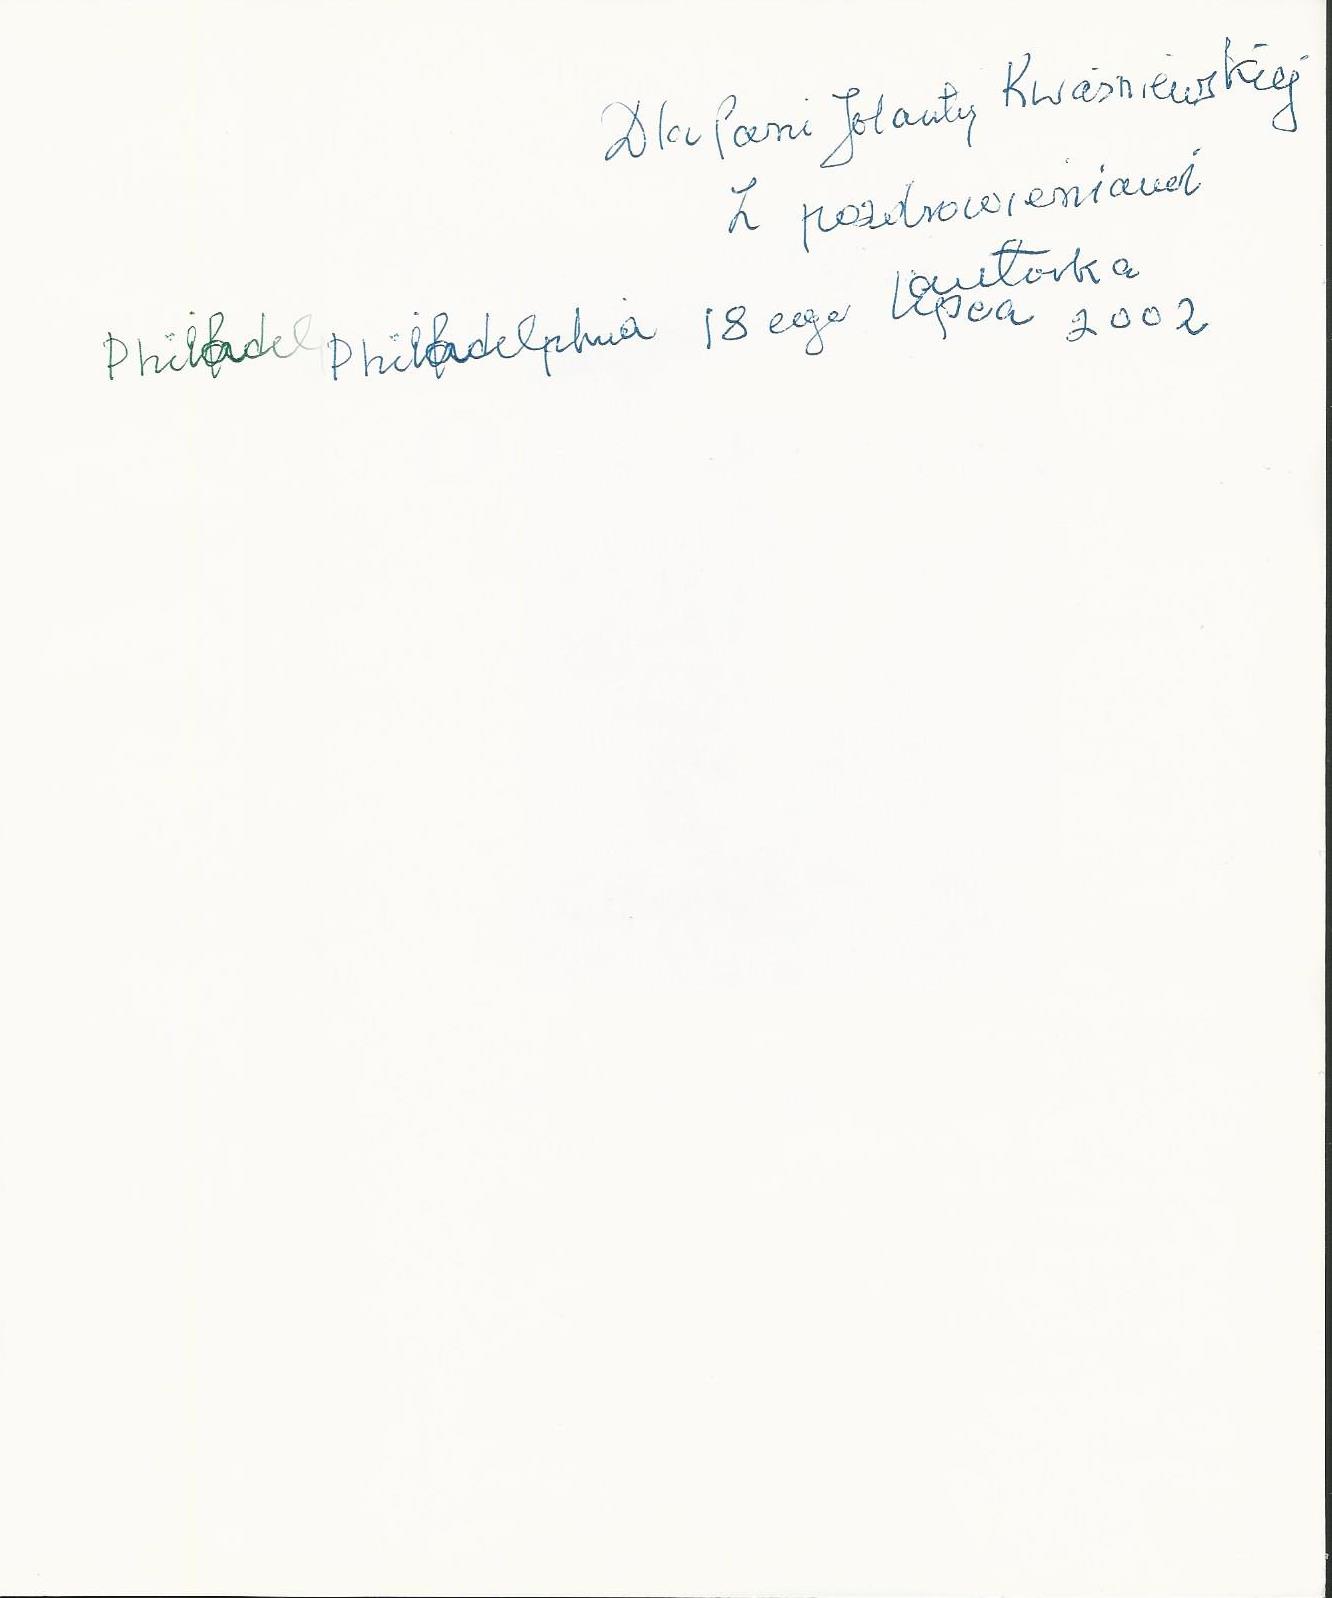 Dla Pani Jolanty Kwaśniewskiej
Z pozdrowieniami
autorka
Philadel Philadelphia 18 ego Lipca 2002